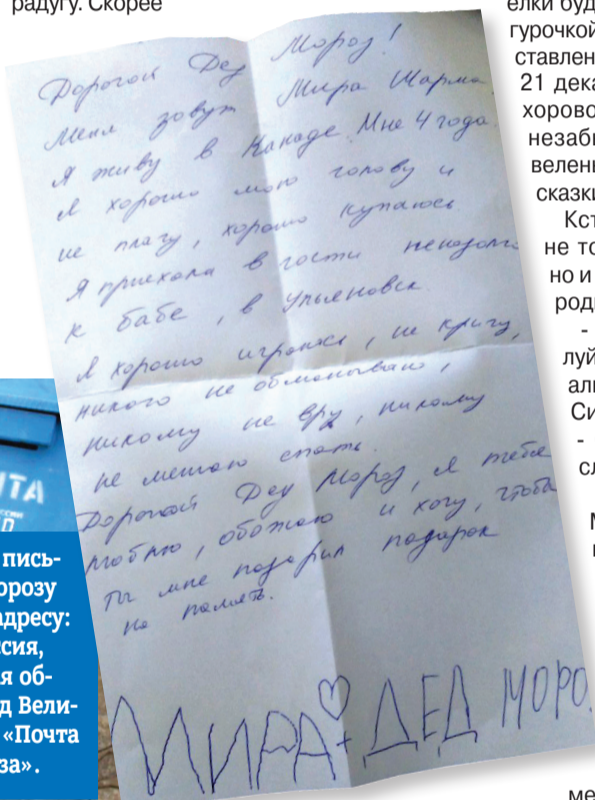 радугу. Скорее
Дорогой Дед Мороз!
Меня зовут Мира Шарма.
Я живу в Канаде. Мне 4 года.
Я хорошо мою голову и
не плачу, хорошо купаюсь.
Я приехала в гости ненадолго
к бабе, в Ульяновск.
Я хорошо играюсь, не кричу,
никого не обманываю,
никому не вру, никому
не мешаю спать.
Дорогой Дед Мороз, я тебя
люблю, обожаю и хочу, чтобы
ты мне подарил подарок
на память.
МИРА + ДЕД МОРО
ТА
пись-
орозу
адресу:
сия,
я об-
д Вели-
«Почта
за».
елки буд
гурочкой
ставлен
21 дека
хорово
незабы
велень
сказки
Кст
не то
но и
роди
-
луй
али
Си
-
сл
ме